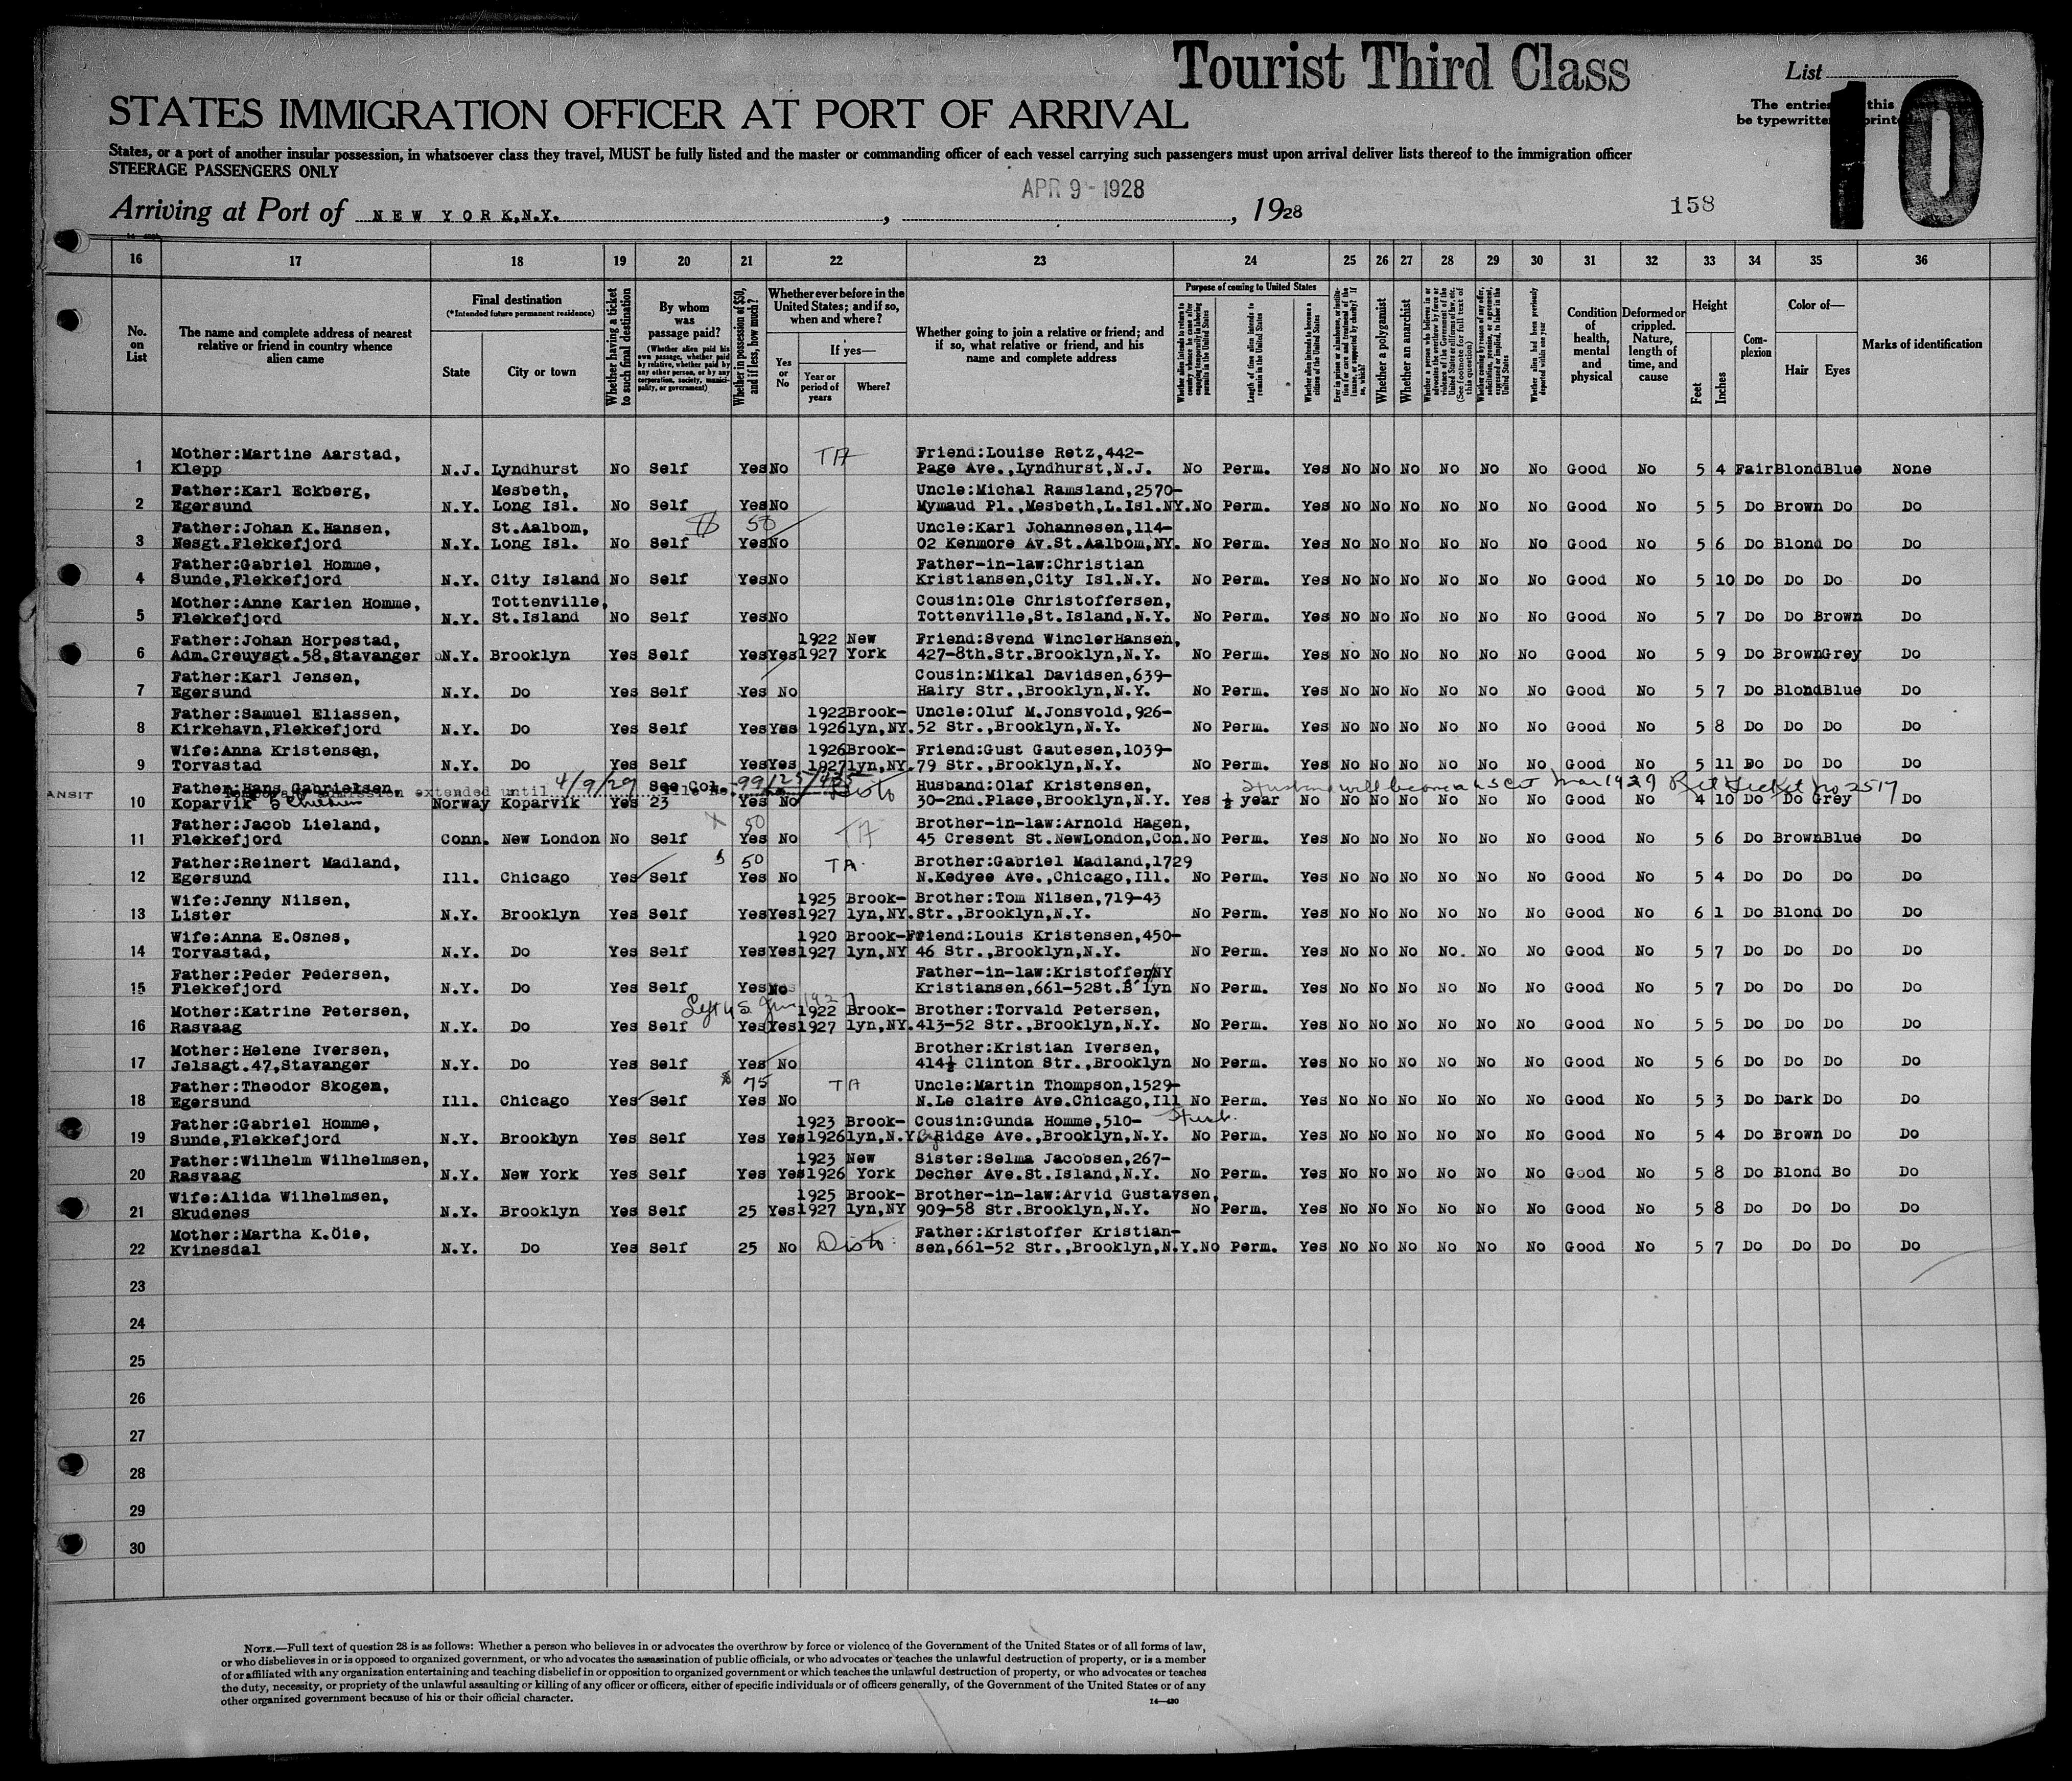 Tourist Third Class
List
10
STATES IMMIGRATION OFFICER AT PORT OF ARRIVAL
The entries this
be typewritten
States, or a port of another insular possession, in whatsoever class they travel, MUST be fully listed and the master or commanding officer of each vessel carrying such passengers must upon arrival deliver lists thereof to the immigration officer
STEERAGE PASSENGERS ONLY
APR 9 - 1928
158
Arriving at Port of NEW YORK,N.Y. , , 1928
16 17 18 19 20 21 22 23 24 25 26 27 28 29 30 31 32 33 34 35 36
No. on List
The name and complete address of nearest relative or friend in country whence alien came
Final destination
(*Intended future permanent residence)
State
City or town
Whether having a ticket to such final destination
By whom was passage paid?
(Whether alien paid his own passage, whether paid by relative, whether paid by any other person, or by any corporation, society, municipality, or government)
Whether in possession of $50, and if less, how much?
Whether ever before in the United States; and if so, when and where?
Yes or No
If yes—
Year or period of years
Where?
Whether going to join a relative or friend; and if so, what relative or friend, and his name and complete address
Purpose of coming to United States
Length of time alien intends to remain in the United States
Whether alien intends to become a citizen of the United States
Whether a polygamist
Whether an anarchist
Whether alien had been previously deported within one year
Condition of health, mental and physical
Deformed or crippled. Nature, length of time, and cause
Height
Feet
Inches
Complexion
Color of—
Hair
Eyes
Marks of identification
Mother:Martine Aarstad, TA Friend:Louise Retz,442-
1 Klepp N.J. Lyndhurst No Self Yes No Page Ave.,Lyndhurst,N.J. No Perm. Yes No No No No No No Good No 5 4 Fair Blond Blue None
Father:Karl Eckberg, Mesbeth, Uncle:Michal Ramsland,2570-
2 Egersund N.Y. Long Isl. No Self Yes No Mymaud Pl.,Mesbeth,L.Isl.NY. No Perm. Yes No No No No No No Good No 5 5 Do Brown Do Do
Father:Johan K.Hansen, St.Aalbom, 50 Uncle:Karl Johannesen,114-
3 Nesgt.Flekkefjord N.Y. Long Isl. No Self Yes No 02 Kenmore Av.St.Aalbom,NY. No Perm. Yes No No No No No No Good No 5 6 Do Blond Do Do
Father:Gabriel Homme, Father-in-law:Christian
4 Sunde,Flekkefjord N.Y. City Island No Self Yes No Kristiansen,City Isl.N.Y. No Perm. Yes No No No No No No Good No 5 10 Do Do Do Do
Mother:Anne Karien Homme, Tottenville, Cousin:Ole Christoffersen,
5 Flekkefjord N.Y. St.Island No Self Yes No Tottenville,St.Island,N.Y. No Perm. Yes No No No No No No Good No 5 7 Do Do Brown Do
Father:Johan Horpestad, 1922 New Friend:Svend WinclerHansen,
6 Adm.Creuysgt.58,Stavanger N.Y. Brooklyn Yes Self Yes Yes 1927 York 427-8th.Str.Brooklyn,N.Y. No Perm. Yes No No No No No No Good No 5 9 Do Brown Grey Do
Father:Karl Jensen, Cousin:Mikal Davidsen,639-
7 Egersund N.Y. Do Yes Self Yes No Hairy Str.,Brooklyn,N.Y. No Perm. Yes No No No No No No Good No 5 7 Do Blond Blue Do
Father:Samuel Eliassen, 1922 Brook- Uncle:Oluf M.Jonsvold,926-
8 Kirkehavn,Flekkefjord N.Y. Do Yes Self Yes Yes 1926 lyn,NY. 52 Str.,Brooklyn,N.Y. No Perm. Yes No No No No No No Good No 5 8 Do Do Do Do
Wife:Anna Kristensen, 1926 Brook- Friend:Gust Gautesen,1039-
9 Torvastad N.Y. Do Yes Self Yes Yes 1927 lyn,NY. 79 Str.,Brooklyn,N.Y. No Perm. Yes No No No No No No Good No 5 11 Do Do Do Do
Father:Hans Gabrielsen, See Col. Husband:Olaf Kristensen,
ANSIT Temporary admission extended until 4/9/29 99/25/435 Husband will become a US Cit Mar 1929 Ret Ticket No 2517
10 Koparvik 5 Children Norway Koparvik Yes 23 Yes No 30-2nd.Place,Brooklyn,N.Y. Yes ½ year No No No No No No No Good No 4 10 Do Do Grey Do
Father:Jacob Lieland, 50 TA Brother-in-law:Arnold Hagen,
11 Flekkefjord Conn. New London No Self Yes No 45 Cresent St.NewLondon,Con. No Perm. Yes No No No No No No Good No 5 6 Do Brown Blue Do
Father:Reinert Madland, 50 TA Brother:Gabriel Madland,1729
12 Egersund Ill. Chicago Yes Self Yes No N.Kedyee Ave.,Chicago,Ill. No Perm. Yes No No No No No No Good No 5 4 Do Do Do Do
Wife:Jenny Nilsen, 1925 Brook- Brother:Tom Nilsen,719-43
13 Lister N.Y. Brooklyn Yes Self Yes Yes 1927 lyn,NY. Str.,Brooklyn,N.Y. No Perm. Yes No No No No No No Good No 6 1 Do Blond Do Do
Wife:Anna E.Osnes, 1920 Brook- Friend:Louis Kristensen,450-
14 Torvastad, N.Y. Do Yes Self Yes Yes 1927 lyn,NY 46 Str.,Brooklyn,N.Y. No Perm. Yes No No No No. No No Good No 5 7 Do Do Do Do
Father:Peder Pedersen, Father-in-law:Kristoffer NY
15 Flekkefjord N.Y. Do Yes Self Yes No Kristiansen,661-52St.B'lyn No Perm. Yes No No No No No No Good No 5 7 Do Do Do Do
Mother:Katrine Petersen, Left US June 1927 1922 Brook- Brother:Torvald Petersen,
16 Rasvaag N.Y. Do Yes Self Yes Yes 1927 lyn,NY. 413-52 Str.,Brooklyn,N.Y. No Perm. Yes No No No No No No Good No 5 5 Do Do Do Do
Mother:Helene Iversen, Brother:Kristian Iversen,
17 Jelsagt.47,Stavanger N.Y. Do Yes Self Yes No 414½ Clinton Str.,Brooklyn No Perm. Yes No No No No No No Good No 5 6 Do Do Do Do
Father:Theodor Skogen, 75 TA Uncle:Martin Thompson,1529-
18 Egersund Ill. Chicago Yes Self Yes No N.Le claire Ave.Chicago,Ill No Perm. Yes No No No No No No Good No 5 3 Do Dark Do Do
Father:Gabriel Homme, 1923 Brook- Cousin:Gunda Homme,510- Husb.
19 Sunde,Flekkefjord N.Y. Brooklyn Yes Self Yes Yes 1926 lyn,N.Y. Ridge Ave.,Brooklyn,N.Y. No Perm. Yes No No No No No No Good No 5 4 Do Brown Do Do
Father:Wilhelm Wilhelmsen, 1923 New Sister:Selma Jacobsen,267-
20 Rasvaag N.Y. New York Yes Self Yes Yes 1926 York Decher Ave.St.Island,N.Y. No Perm. Yes No No No No No No Good No 5 8 Do Blond Bo Do
Wife:Alida Wilhelmsen, 1925 Brook- Brother-in-law:Arvid Gustavsen,
21 Skudenes N.Y. Brooklyn Yes Self 25 Yes 1927 lyn,NY 909-58 Str.Brooklyn,N.Y. No Perm. Yes No No No No No No Good No 5 8 Do Do Do Do
Mother:Martha K.Öie, Father:Kristoffer Kristian-
22 Kvinesdal N.Y. Do Yes Self 25 No sen,661-52 Str.,Brooklyn,N.Y. No Perm. Yes No No No No No No Good No 5 7 Do Do Do Do
23
24
25
26
27
28
29
30
NOTE.—Full text of question 28 is as follows: Whether a person who believes in or advocates the overthrow by force or violence of the Government of the United States or of all forms of law,
or who disbelieves in or is opposed to organized government, or who advocates the assassination of public officials, or who advocates or teaches the unlawful destruction of property, or is a member
of or affiliated with any organization entertaining and teaching disbelief in or opposition to organized government or which teaches the unlawful destruction of property, or who advocates or teaches
the duty, necessity, or propriety of the unlawful assaulting or killing of any officer or officers, either of specific individuals or of officers generally, of the Government of the United States or of any
other organized government because of his or their official character.
14—430